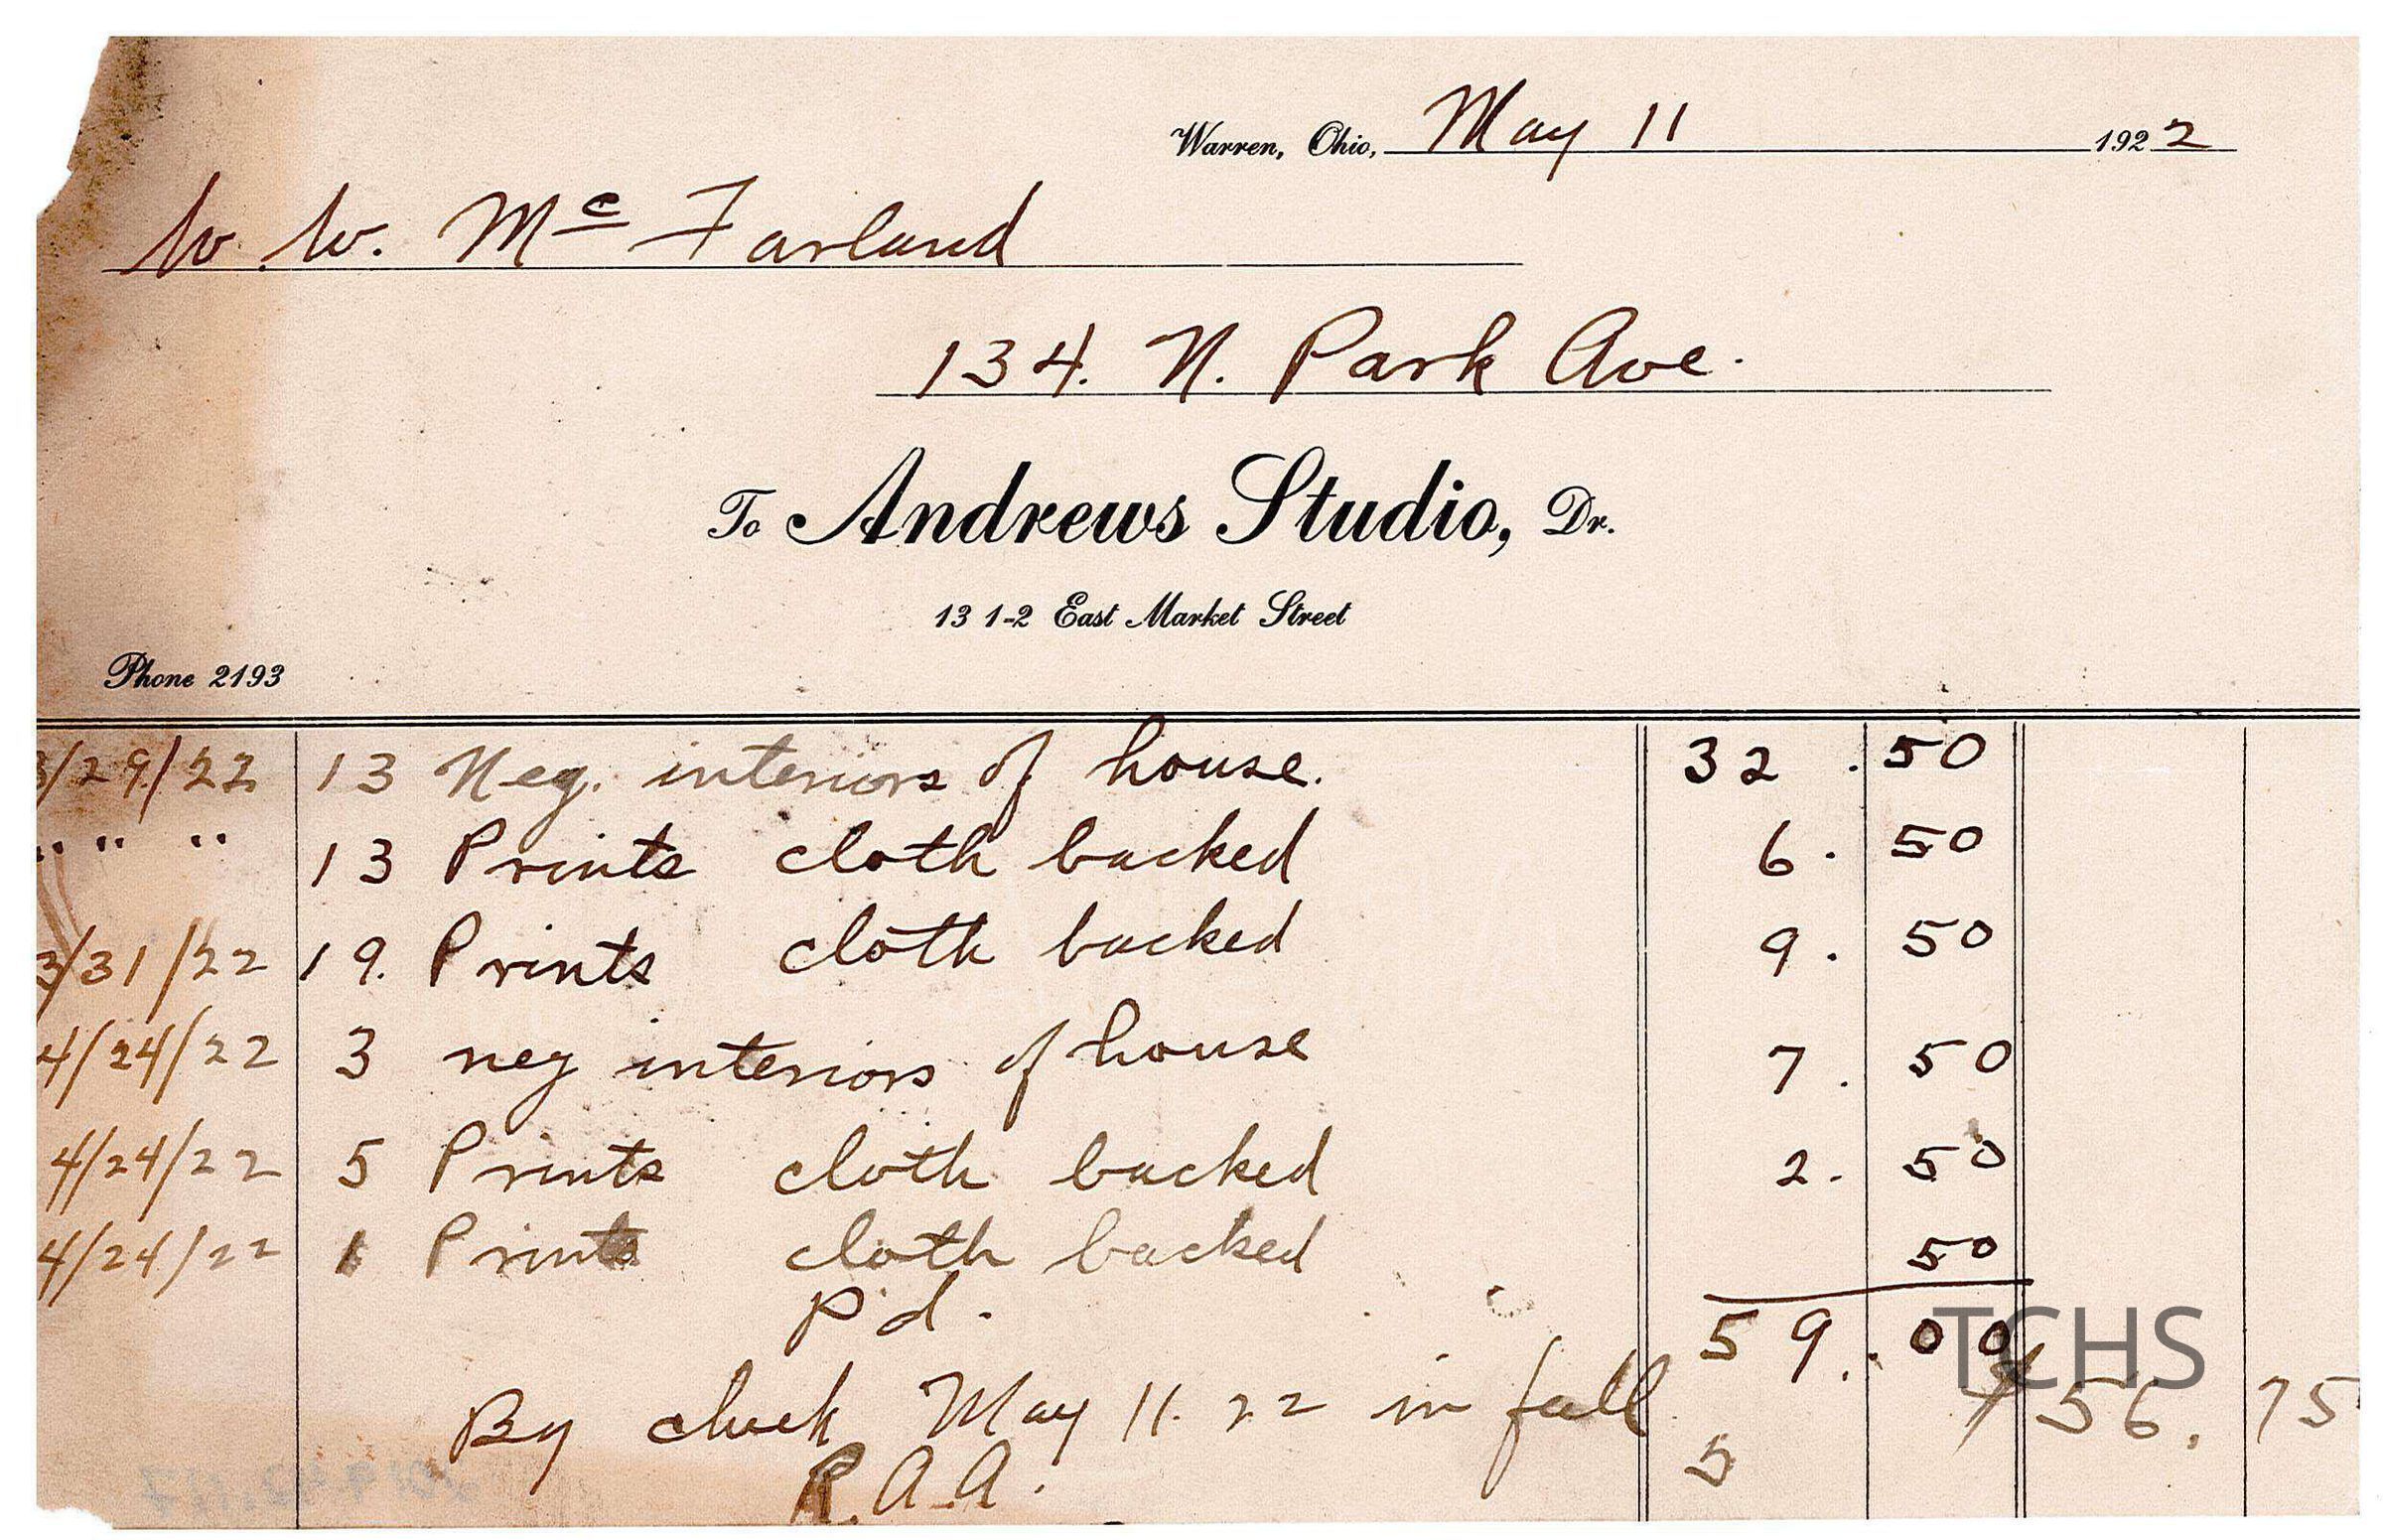 Warren, Ohio, May 11 1922
W. W. McFarland
134. N. Park Ave.
To Andrews Studio, Dr.
13 1-2 East Market Street
Phone 2193
3/29/22 13 Neg. interiors of house. 32.50
" " " 13 Prints cloth backed 6.50
3/31/22 19. Prints cloth backed 9.50
4/24/22 3 neg interiors of house 7.50
4/24/22 5 Prints cloth backed 2.50
4/24/22 1 Prints cloth backed 50
Pd. 59.00
TCHS
By check May 11. 22 in full 56.75
R.A.A. 5